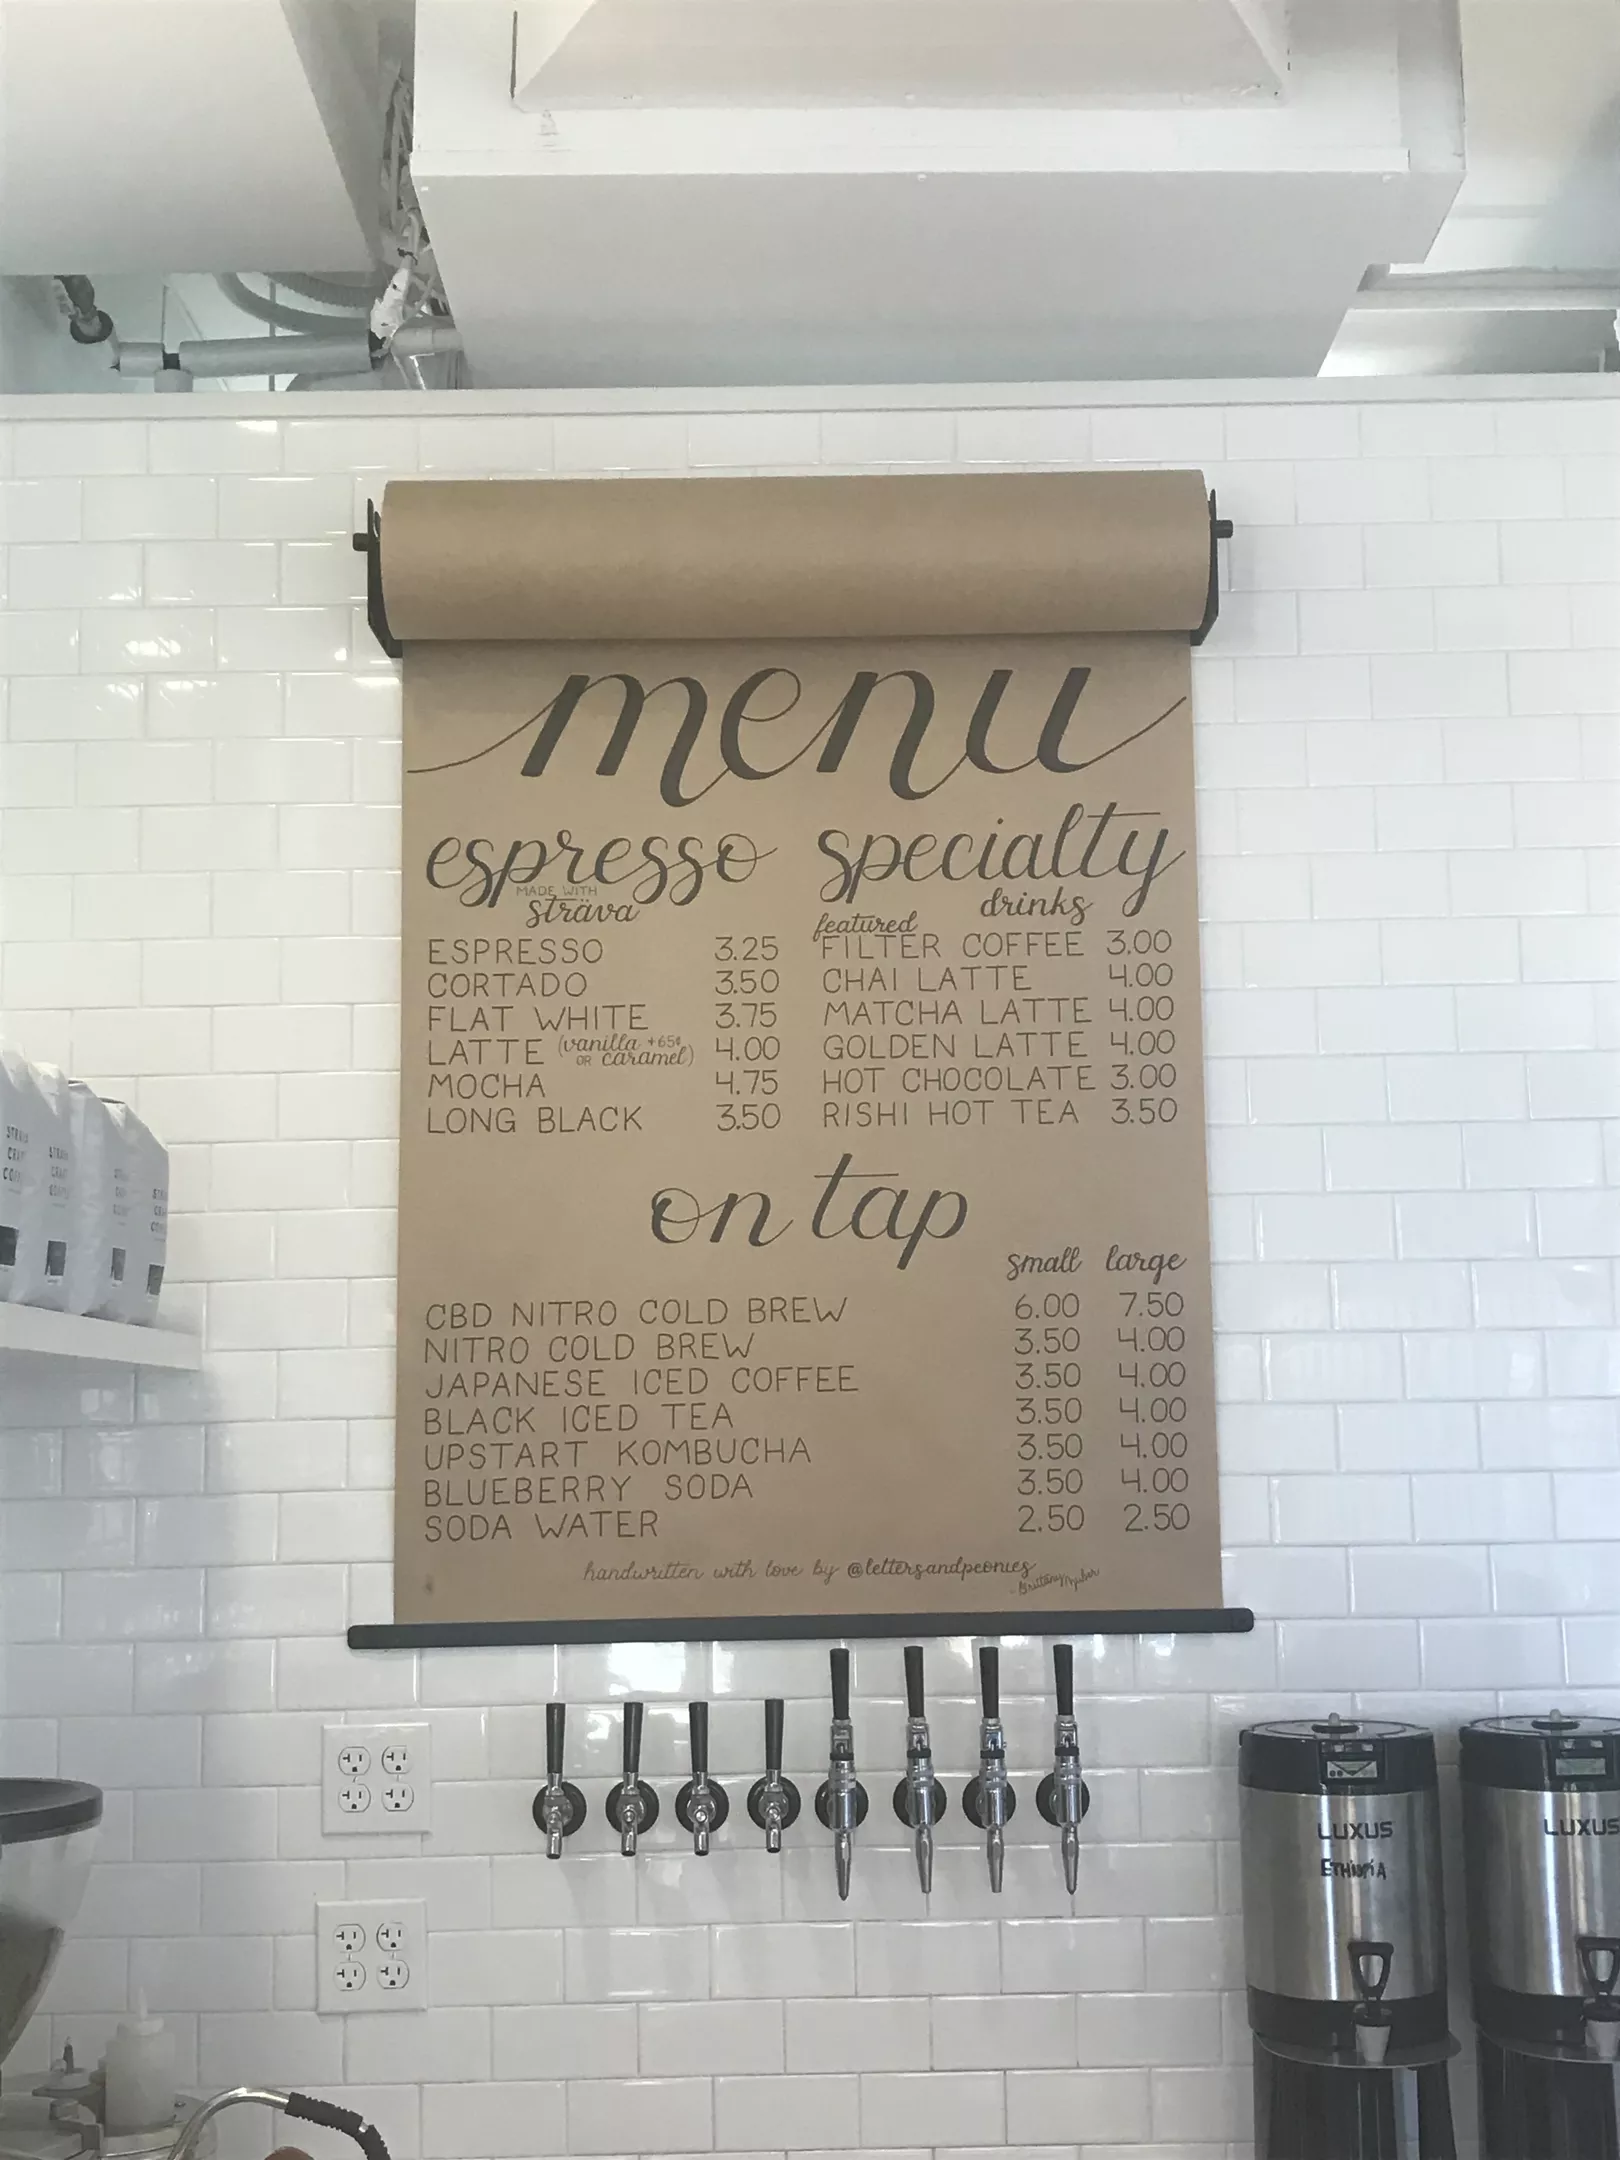 menu
espresso
MADE WITH
sträva
ESPRESSO 3.25
CORTADO 3.50
FLAT WHITE 3.75
LATTE (vanilla +65¢ OR caramel) 4.00
MOCHA 4.75
LONG BLACK 3.50
specialty
drinks
featured
FILTER COFFEE 3.00
CHAI LATTE 4.00
MATCHA LATTE 4.00
GOLDEN LATTE 4.00
HOT CHOCOLATE 3.00
RISHI HOT TEA 3.50
on tap
small large
CBD NITRO COLD BREW 6.00 7.50
NITRO COLD BREW 3.50 4.00
JAPANESE ICED COFFEE 3.50 4.00
BLACK ICED TEA 3.50 4.00
UPSTART KOMBUCHA 3.50 4.00
BLUEBERRY SODA 3.50 4.00
SODA WATER 2.50 2.50
handwritten with love by @lettersandpeonies
- Brittany
LUXUS
ETHIOPIA
LUXUS